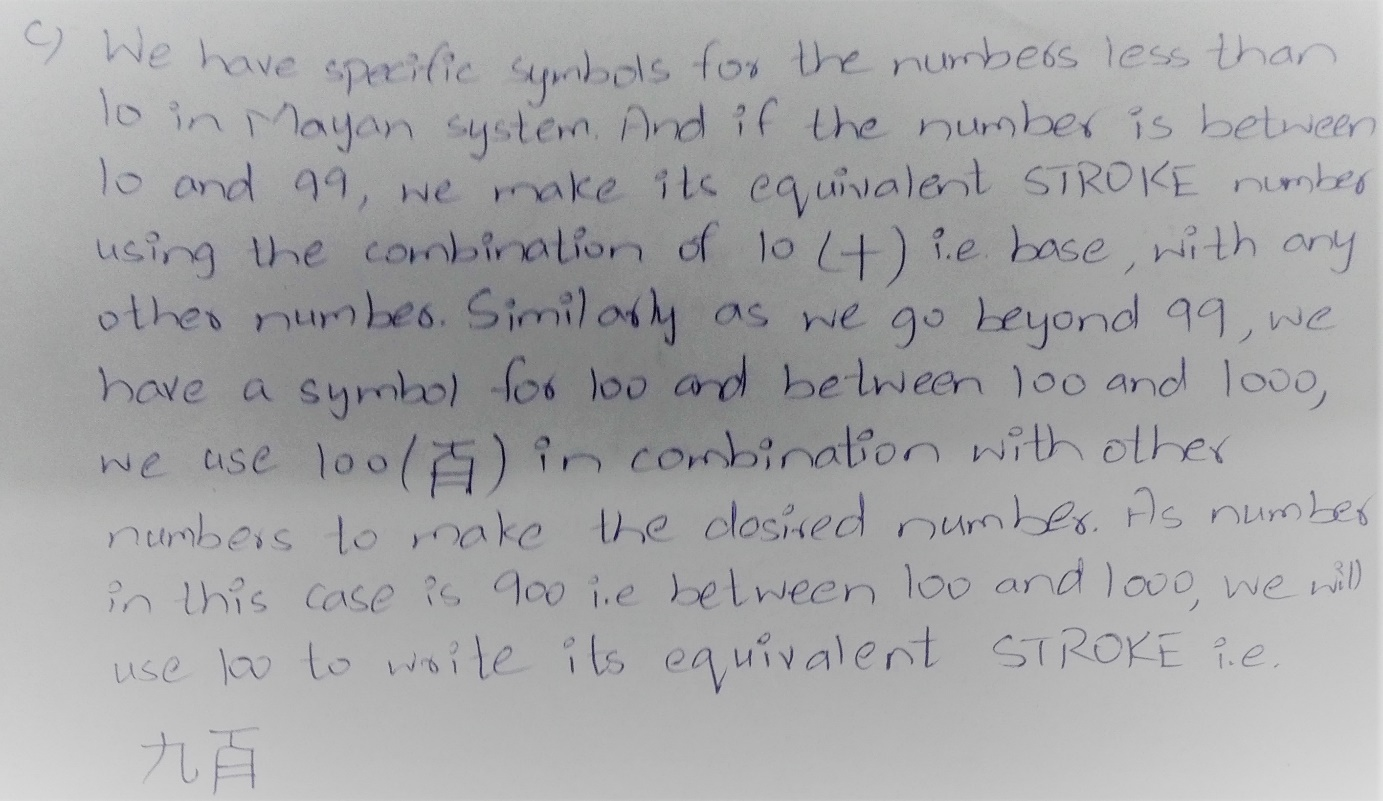 c) We have specific symbols for the numbers less than
10 in Mayan system. And if the number is between
10 and 99, we make its equivalent STROKE number
using the combination of 10 (十) i.e. base, with any
other number. Similarly as we go beyond 99, we
have a symbol for 100 and between 100 and 1000,
we use 100 (百) in combination with other
numbers to make the desired number. As number
in this case is 900 i.e between 100 and 1000, we will
use 100 to write its equivalent STROKE i.e.
九百